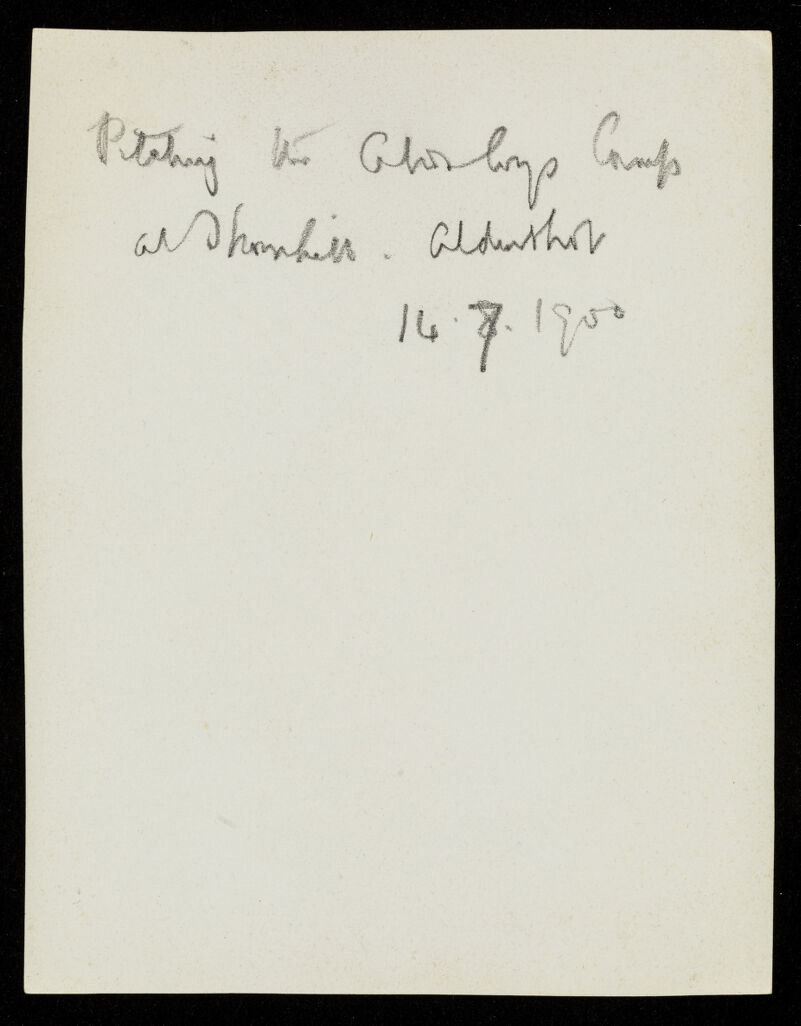 Pitching the Corps Camp
at Thornhill. Aldershot
14.7.1900